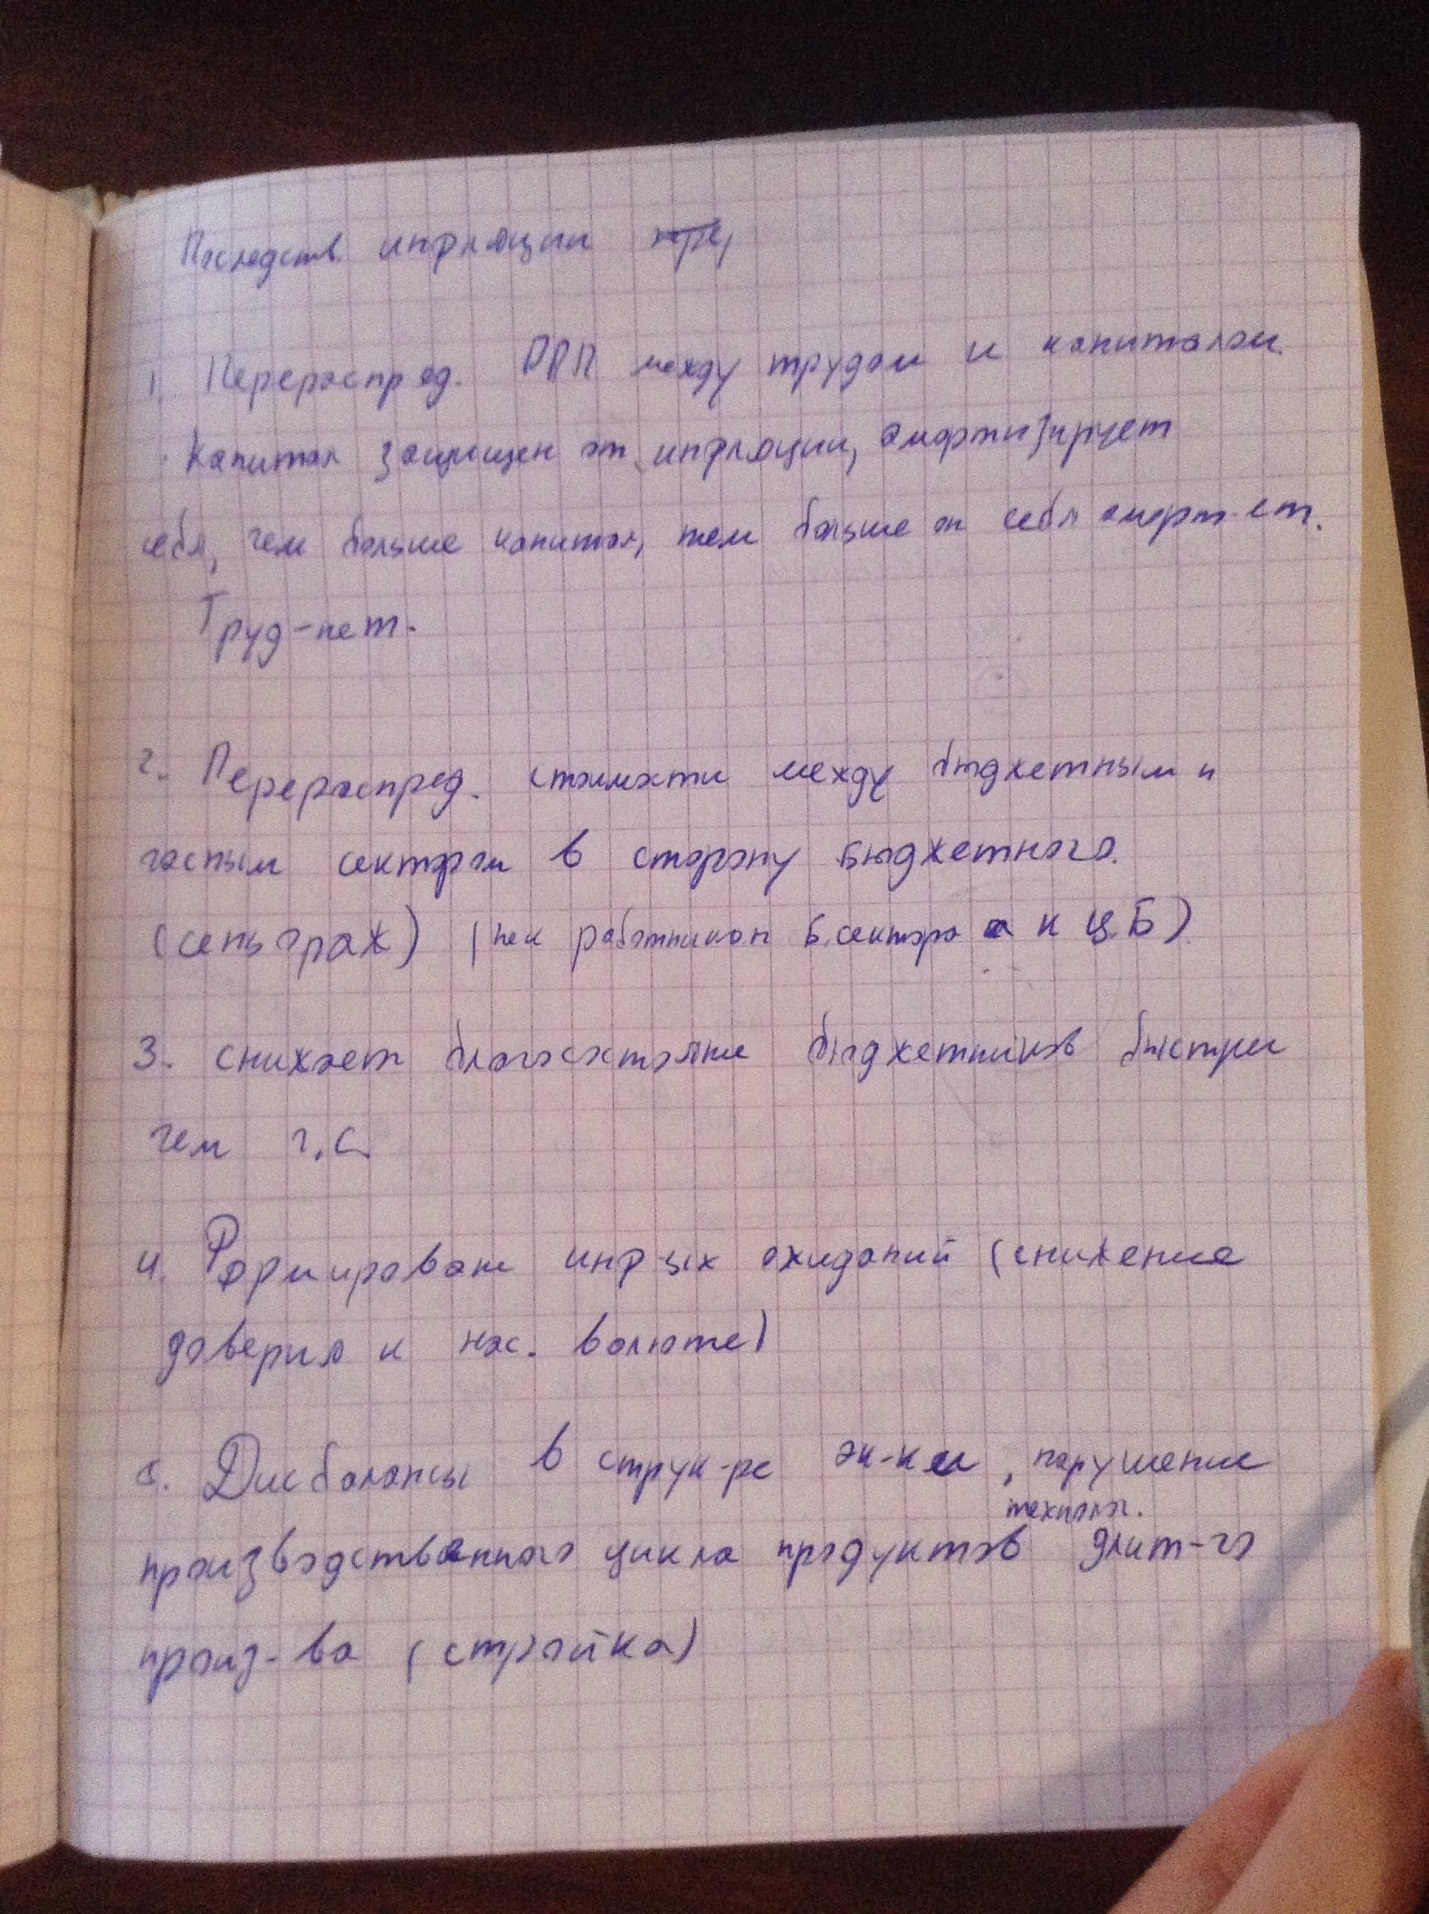 Последств. инфляции
1. Перераспред. ВВП между трудом и капиталом.
Капитал защищен от инфляции, амортизирует
себя, чем больше капитал, тем больше он себя аморт-ет.
Труд-нет.
2. Перераспред. стоимости между бюджетным и
госным сектором в сторону Бюджетного.
(сеньораж) (не к работникам Б. сектора а к Ц.Б)
3. снижает благосостояние бюджетников быстрей
чем г.С.
4. Формирован инф-ых ожиданий (снижение
доверия к нас. валюте)
5. Дисбалансы в струк-ре эк-ки, нарушение
технолог.
производственного цикла продуктов длит-го
произ-ва (стройка)